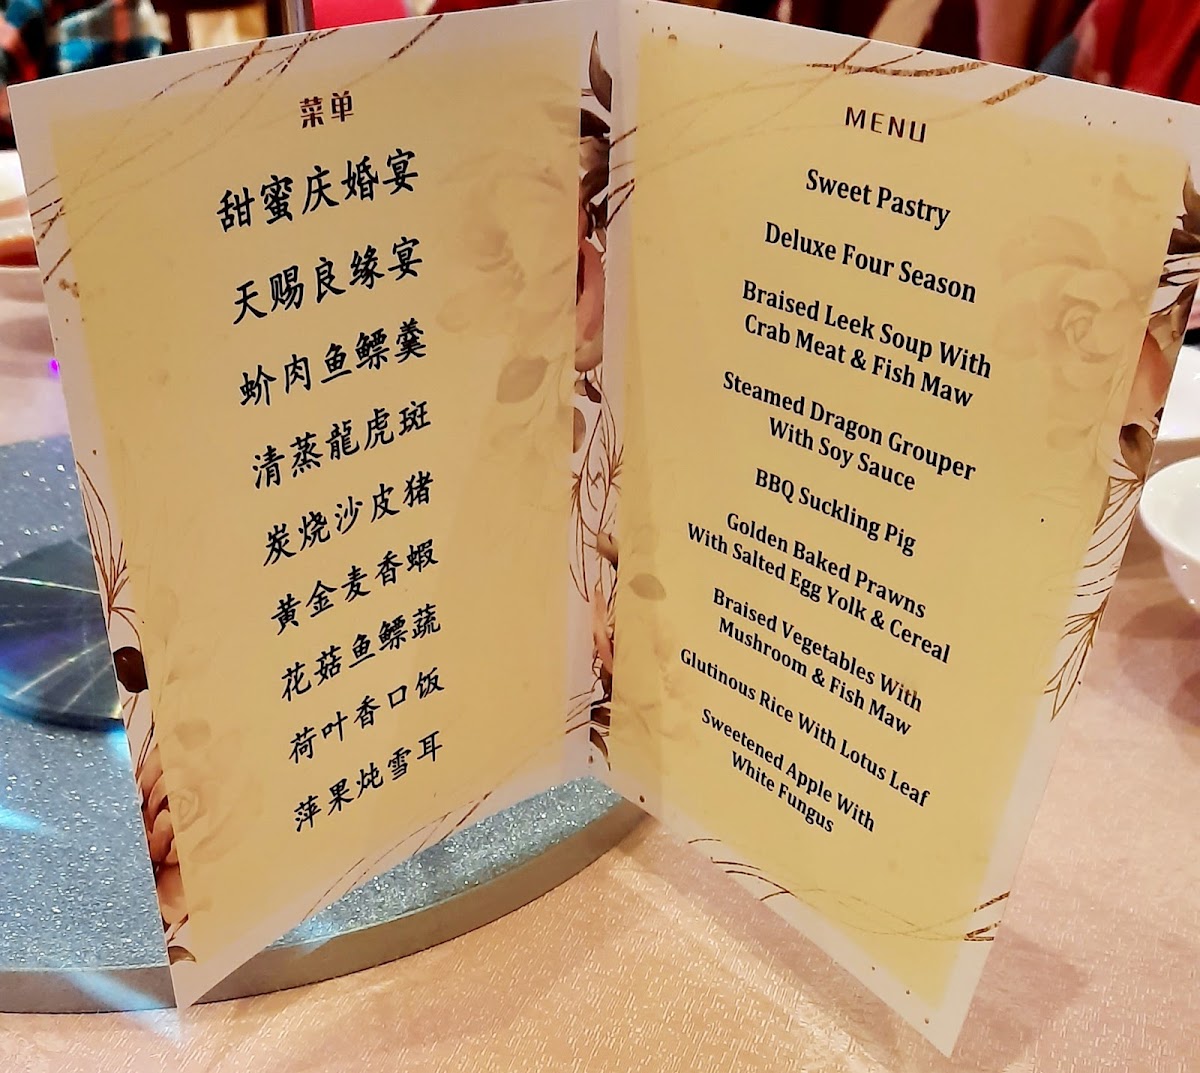 菜单
甜蜜庆婚宴
天赐良缘宴
蚧肉鱼鳔羹
清蒸龍虎斑
炭烧沙皮猪
黄金麦香蝦
花菇鱼鳔蔬
荷叶香口饭
萍果炖雪耳
MENU
Sweet Pastry
Deluxe Four Season
Braised Leek Soup With
Crab Meat & Fish Maw
Steamed Dragon Grouper
With Soy Sauce
BBQ Suckling Pig
Golden Baked Prawns
With Salted Egg Yolk & Cereal
Braised Vegetables With
Mushroom & Fish Maw
Glutinous Rice With Lotus Leaf
Sweetened Apple With
White Fungus